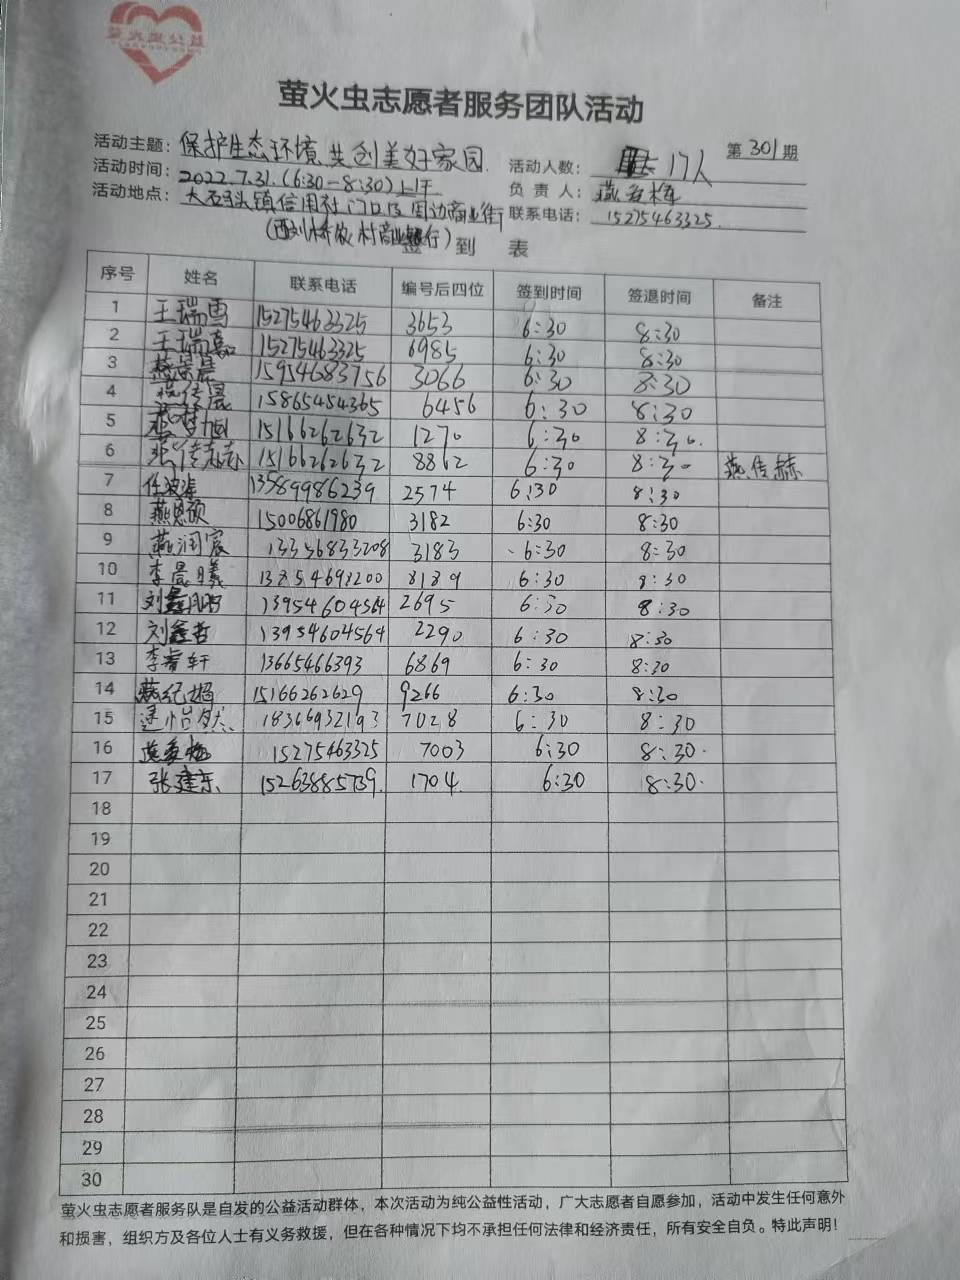 萤火虫志愿者服务团队活动
第301期
活动主题：保护生态环境,共创美好家园.
活动人数：17人
活动时间：2022.7.31.(6:30-8:30)上午
负责人：燕爱梅
活动地点：大码头镇信用社门口及周边商业街
联系电话：15275463325.
(西刘桥农村商业银行)
签到表
序号 姓名 联系电话 编号后四位 签到时间 签退时间 备注
1 王瑞雪 15275463325 3653 6:30 8:30
2 王瑞嘉 15275463325 6985 6:30 8:30
3 15954683756 3066 6:30 8:30
4 燕传晟 15865454365 6456 6:30 8:30
5 15166262632 1270 6:30 8:30.
6 燕传赫 15166262632 8862 6:30 8:30 燕传赫
7 135899986239 2574 6:30 8:30
8 燕恩硕 15006861980 3182 6:30 8:30
9 燕润宸 13356833208 3183 6:30 8:30
10 李晨曦 13854693200 8189 6:30 8:30
11 刘鑫鹏 13954604564 2695 6:30 8:30
12 刘鑫哲 13954604564 2290 6:30 8:30
13 李睿轩 13665466393 6869 6:30 8:30
14 15166262629 9266 6:30 8:30
15 逯怡然 18366932193 7028 6:30 8:30
16 燕爱梅 15275463325 7003 6:30 8:30.
17 张建东 15263885739. 1704. 6:30 8:30.
18
19
20
21
22
23
24
25
26
27
28
29
30
萤火虫志愿者服务队是自发的公益活动群体，本次活动为纯公益性活动，广大志愿者自愿参加，活动中发生任何意外
和损害，组织方及各位人士有义务救援，但在各种情况下均不承担任何法律和经济责任，所有安全自负。特此声明！